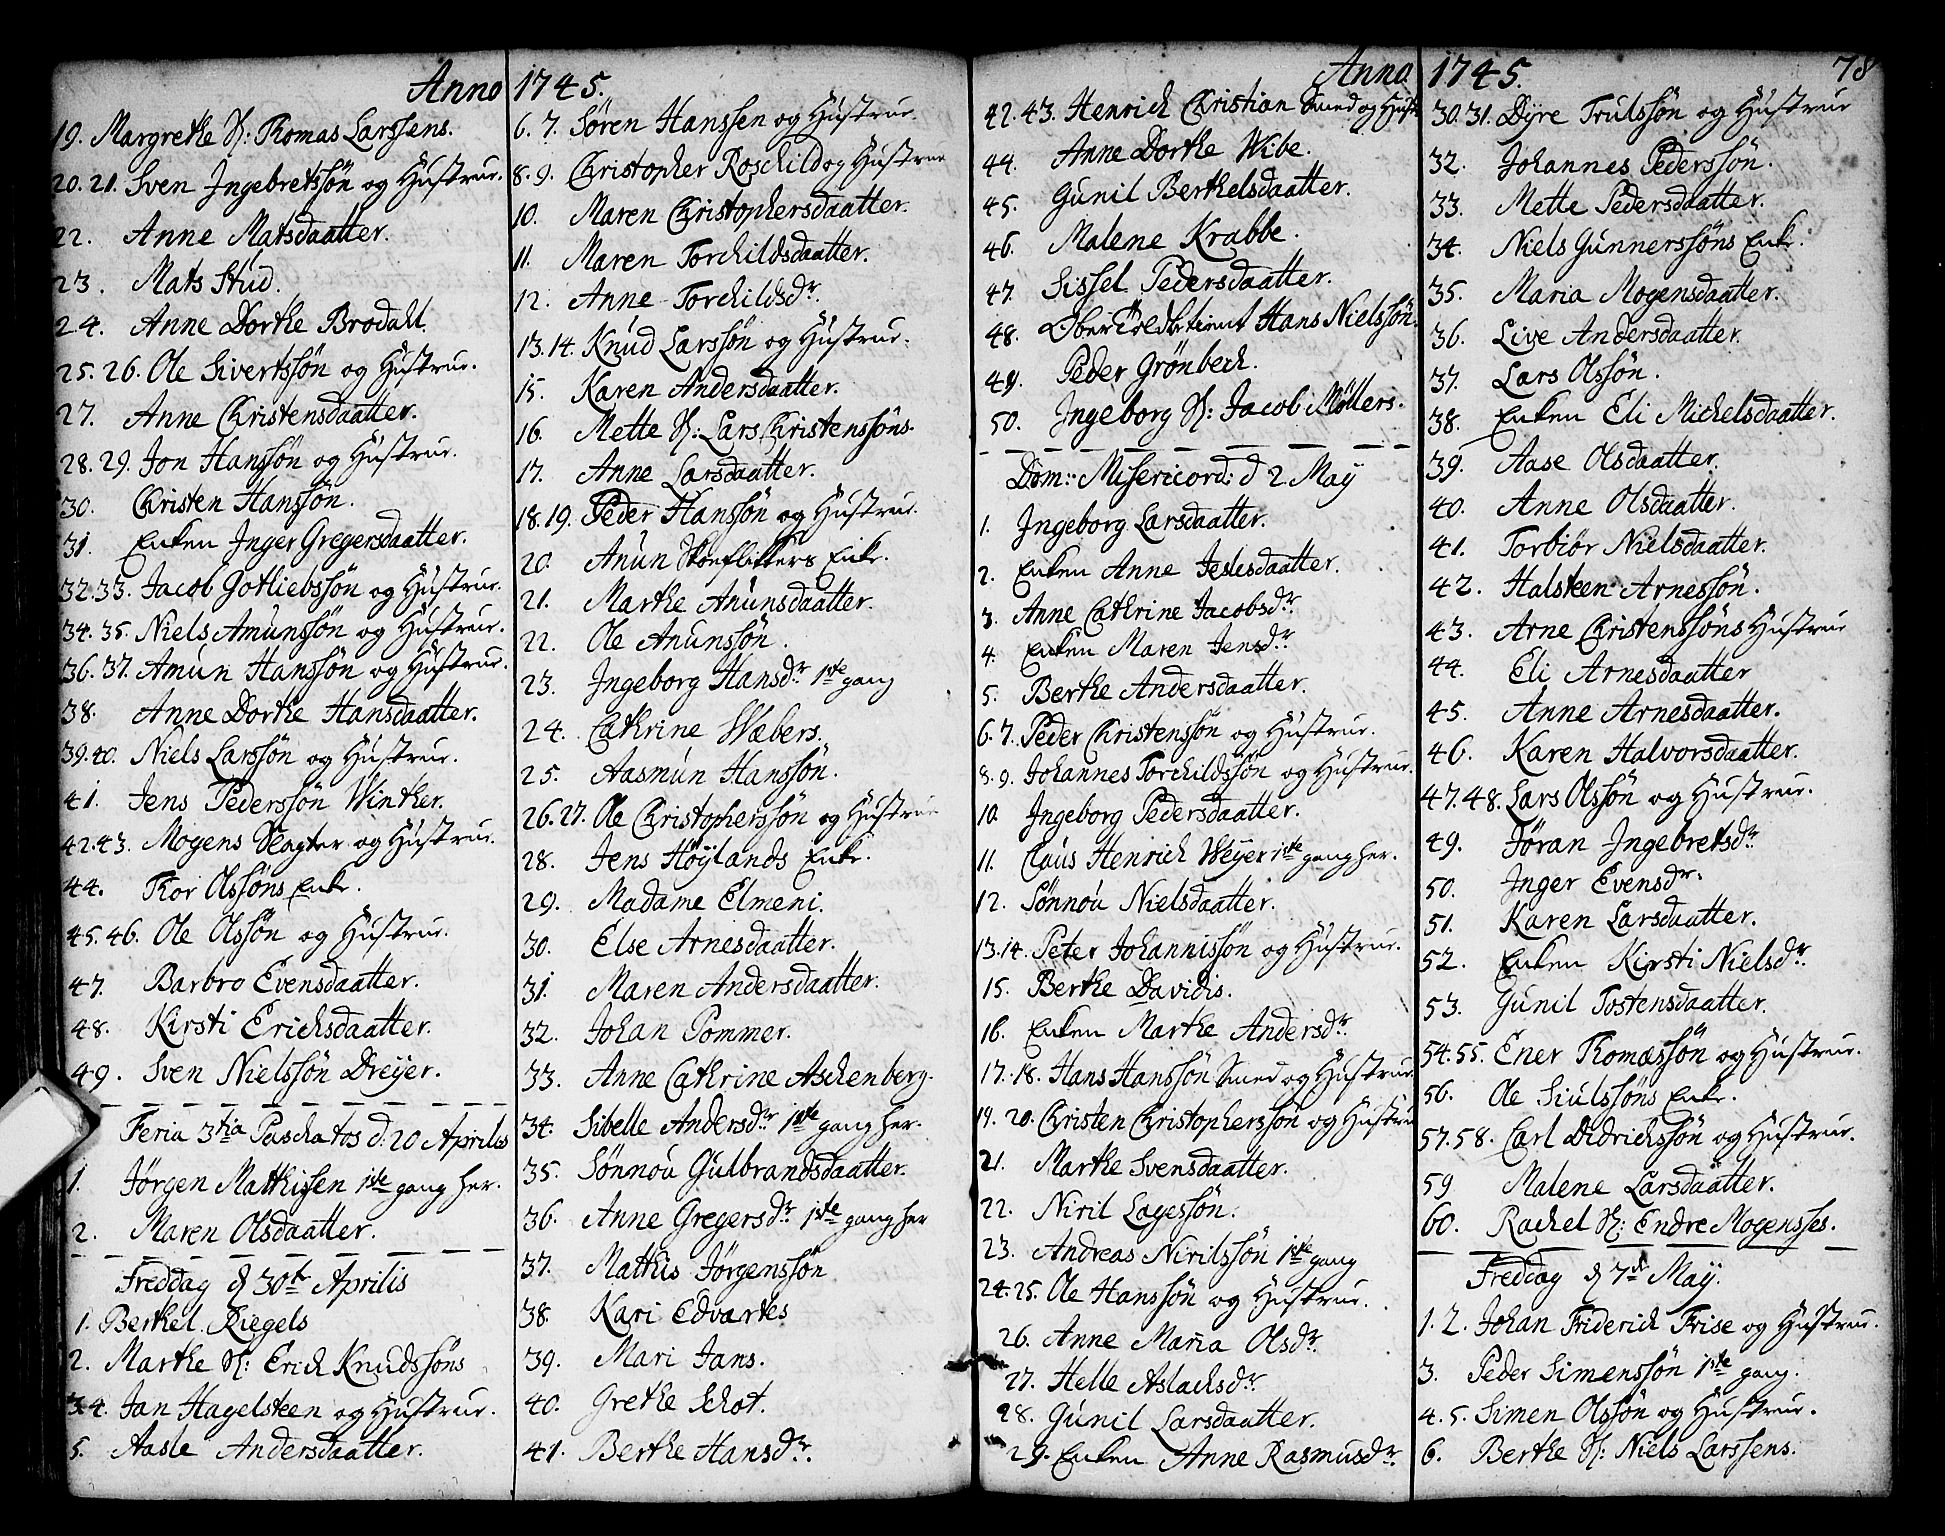 Anno 1745.
19. Margrethe H: Thomas Larssens.
20. 21. Sven Ingebretssön og Hustrue.
22. Anne Matsdaatter.
23. Mats Stud.
24. Anne Dorthe Brodahl.
25. 26. Ole Sivertssön og Hustrue.
27. Anne Christensdaatter.
28. 29. Jon Hanssön og Hustrue.
30. Christen Hanssön.
31. Enken Inger Gregersdaatter.
32. 33. Jacob Gotliebssön og Hustrue.
34. 35. Niels Amunssön og Hustrue.
36. 37. Amun Hanssön og Hustrue.
38. Anne Dorthe Hansdaatter.
39. 40. Niels Larssön og Hustrue.
41. Jens Pederssön Winther.
42. 43. Mogens Slagter og Hustrue.
44. Thor Olssöns Enke.
45. 46. Ole Olssön og Hustrue.
47. Barbro Evensdaatter.
48. Kirsti Erichsdaatter.
49. Sven Nielssön Dreyer.
Feria 3tia Paschatos d: 20 Aprilis
1. Jörgen Mathissen 1ste gang her.
2. Maren Olsdaatter.
Freddag d 30te Aprilis
1. Berthel Riegels
2. Marthe H: Erich Knudssöns
3. 4. Jan Hagelsteen og Hustrue.
5. Aasle Andersdaatter.
6. 7. Sören Hanssen og Hustrue.
8. 9. Christopher Roschild og Hustrue
10. Maren Christophersdaatter.
11. Maren Torchildsdaatter.
12. Anne Torchildsdr.
13. 14. Knud Larssön og Hustrue.
15. Karen Andersdaatter.
16. Mette H: Lars Christenssöns.
17. Anne Larsdaatter.
18. 19. Peder Hanssön og Hustrue.
20. Anun Skoeflickers Enke.
21. Marthe Anunsdaatter.
22. Ole Anunssön.
23. Ingeborg Hansdr 1ste gang
24. Cathrine Wæbers.
25. Aasmun Hanssön.
26. 27. Ole Christopherssön og Hustrue
28. Jens Höylands Enke.
29. Madame Elmeni.
30. Else Arnesdaatter.
31. Maren Andersdaatter.
32. Johan Pommer.
33. Anne Cathrine Aschenberg.
34. Sibelle Andersdr 1ste gang her.
35. Sönnou Gulbrandsdaatter.
36. Anne Gregersdr 1ste gang her
37. Mathis Jörgenssön
38. Kari Edvartes
39. Mari Jans.
40. Grethe Schot.
41. Berthe Hansdr.
Anno 1745. 78
42. 43. Henrich Christian Smed og Hustr
44. Anne Dorthe Wibe.
45. Gunil Berthelsdaatter.
46. Malene Krabbe.
47. Sissel Pedersdaatter.
48. Hans Nielssön.
49. Peder Grönbech.
50. Ingeborg H: Jacob Möllers.
Dom: Misericord: d 2 May
1. Ingeborg Larsdaatter.
2. Enken Anne Jeslesdaatter.
3. Anne Cathrine Jacobsdr
4. Enken Maren Jensdr
5. Berthe Andersdaatter.
6. 7. Peder Christenssön og Hustrue.
8. 9. Johannes Torchildssön og Hustrue.
10. Ingeborg Pedersdaatter.
11. Claus Henrich Weyer 1ste gang her.
12. Sönnou Nielsdaatter.
13. 14. Peter Johannissön og Hustrue.
15. Berthe Davidis.
16. Enken Marthe Andersdr.
17. 18. Hans Hanssön Smed og Hustrue
19. 20. Christen Christopherssön og Hustrue
21. Marthe Svensdaatter.
22. Niril Lagessön.
23. Andreas Nirilssön 1ste gang
24. 25. Ole Hanssön og Hustrue.
26. Anne Maria Olsdr.
27. Helle Aslachsdr.
28. Gunil Larsdaatter.
29. Enken Anne Rasmusdr.
30. 31. Dyre Trulssön og Hustrue
32. Johannes Pederssön.
33. Mette Pedersdaatter.
34. Niels Gunnerssöns Enke.
35. Maria Mogensdaatter.
36. Live Andersdaatter.
37. Lars Olssön.
38. Enken Eli Michelsdaatter.
39. Aase Olsdaatter.
40. Anne Olsdaatter.
41. Torbiör Nielsdaatter.
42. Halsteen Arnessön.
43. Arne Christenssöns Hustrue
44. Eli Arnesdaatter
45. Anne Arnesdaatter.
46. Karen Halvorsdaatter.
47. 48. Lars Olssön og Hustrue.
49. Jöran Ingebretsdr
50. Inger Evensdr.
51. Karen Larsdaatter.
52. Enken Kirsti Nielsdr.
53. Gunil Tostensdaatter.
54. 55. Ener Thomæssön og Hustrue.
56. Ole Siulssöns Enke.
57. 58. Carl Didrichssön og Hustrue.
59 Malene Larsdaatter.
60. Rachel H: Endre Mogensses.
Freddag d 7de May.
1. 2. Johan Friderich Frise og Hustrue.
3. Peder Simenssön 1ste gang.
4. 5. Simen Olssön og Hustrue.
6. Berthe H: Niels Larssens.